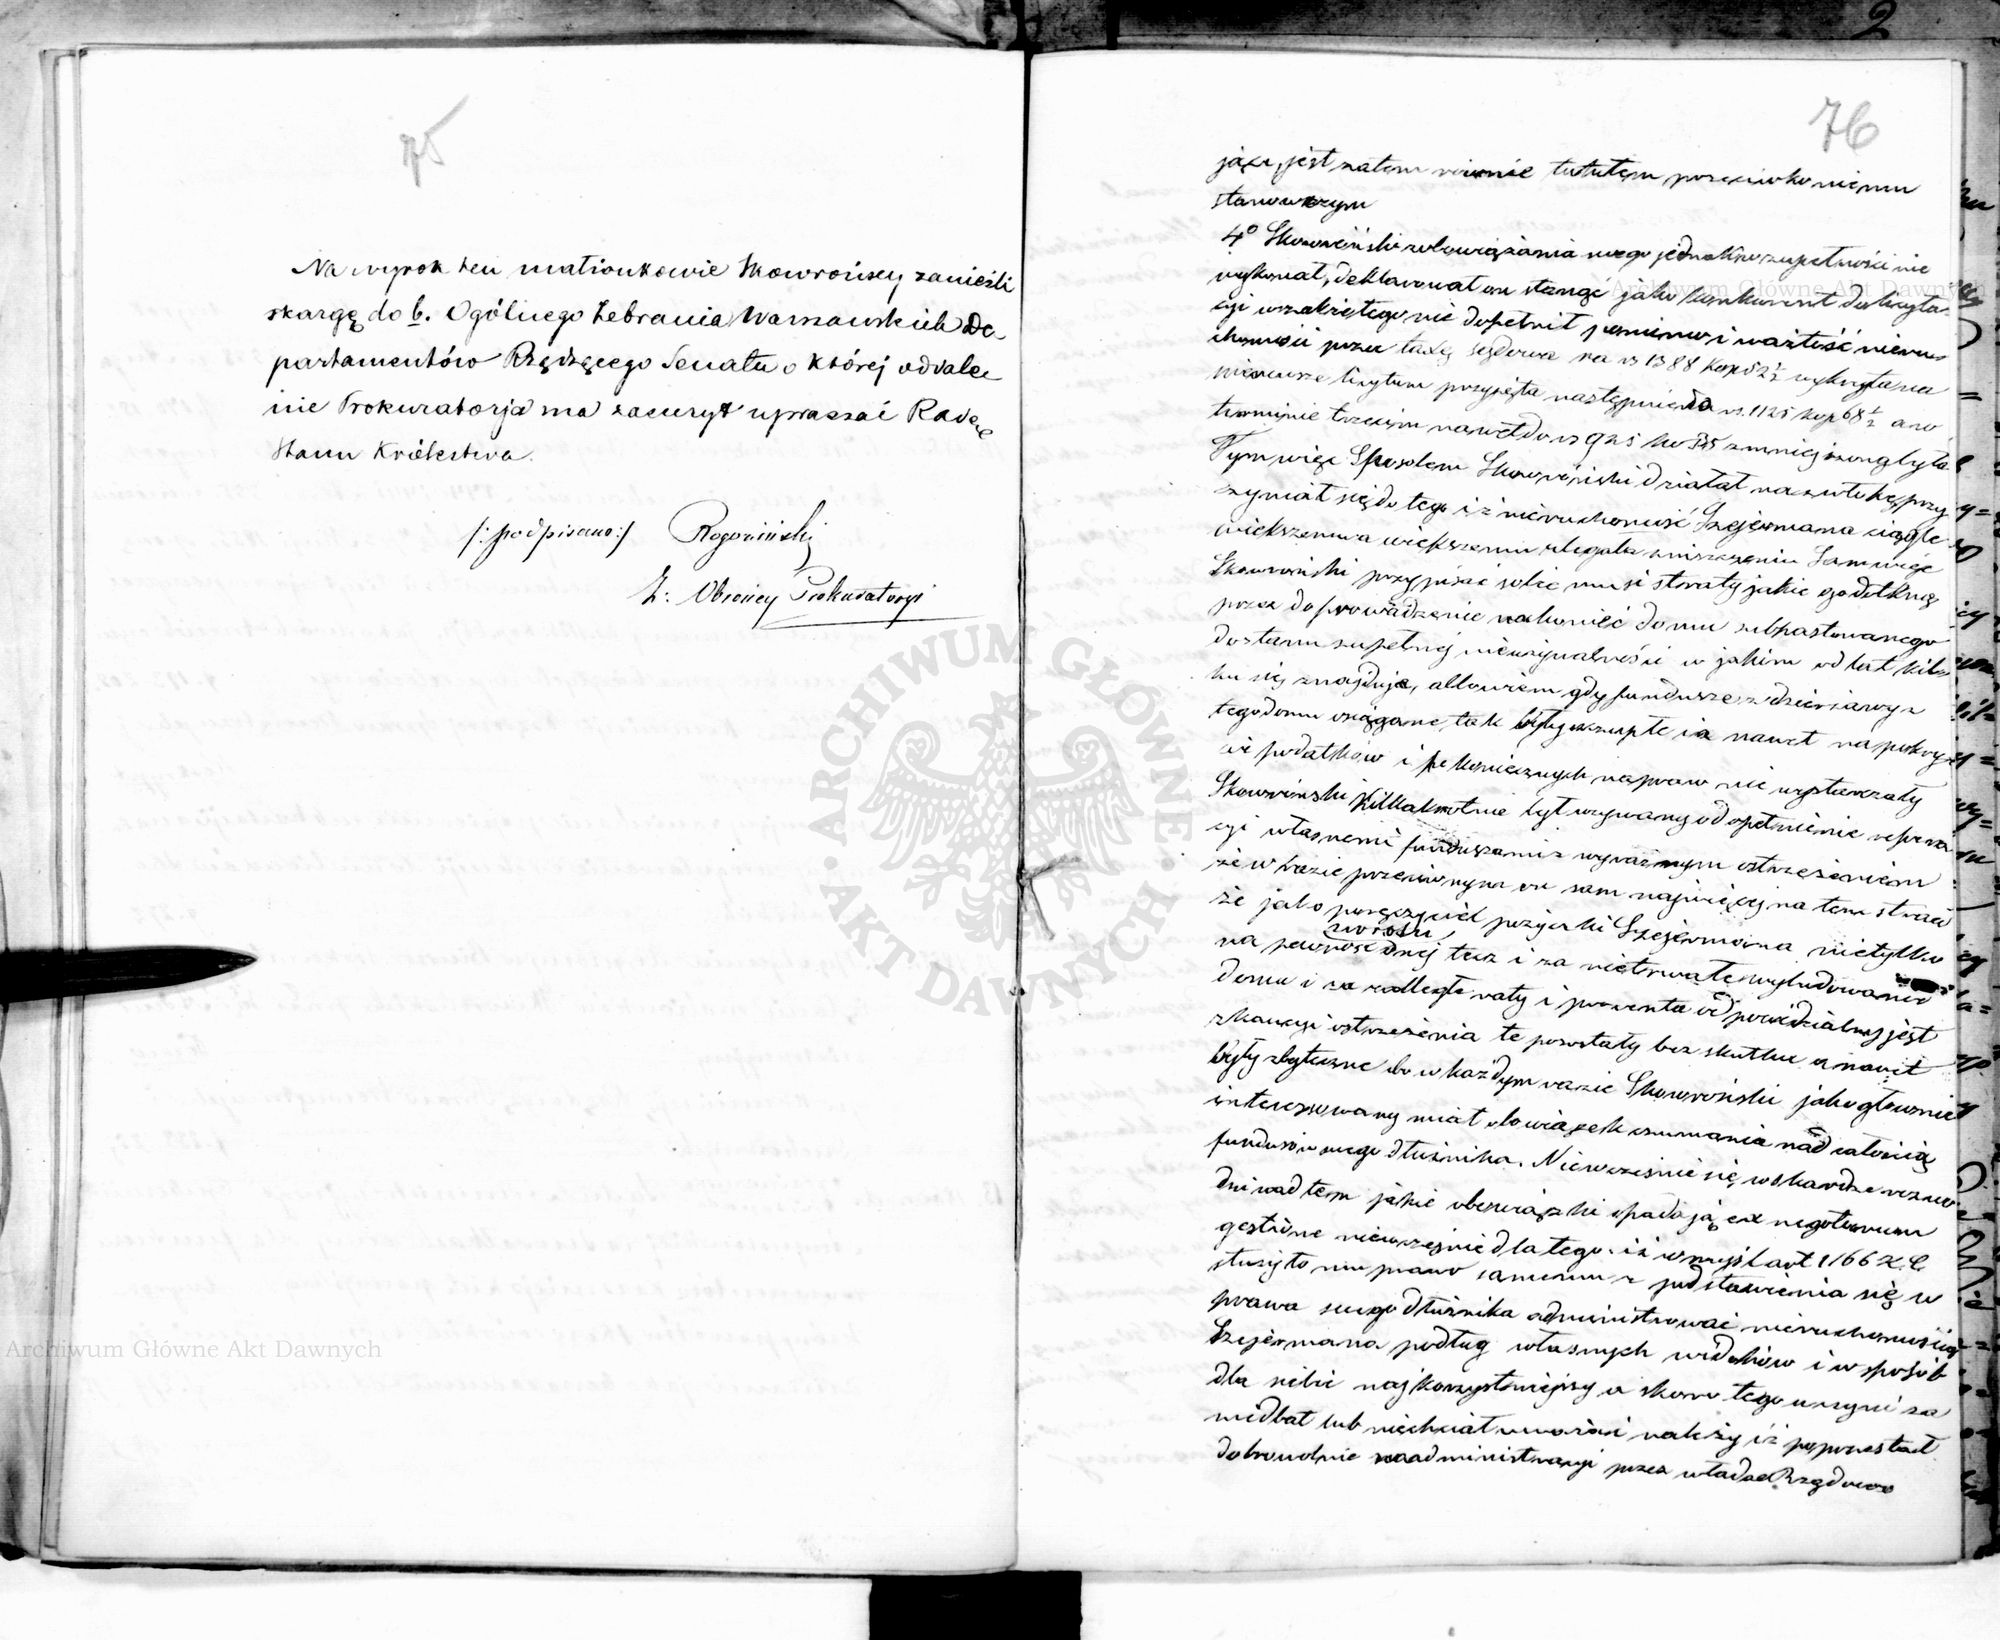 2
75
Na wyrok ten małżonkowie Skowrońscy zanieśli
skargę do b. Ogólnego Zebrania Warszawskich De
partamentów Rządzącego Senatu o której oddale
nie Prokuratorja ma zaszczyt upraszać Radę
Stanu Królestwa.
/: podpisano :/ Rogoziński
Z: Obrońcy Prokuratoryi
76
jące, jest zatem równie tytułem przeciwko niemu
stanowczym
4º Skowroński zobowiązania swego jednak w zupełności nie
wykonał, deklarował on stanąć jako konkurent do licyta
cyi wszakże tego nie dopełnił pomimo i wartość nieru
chomości przez taxę sądową na rs 1388 kop 52½ wykryta na
pierwsze licytum przyjęta następnie do rs. 1125 kop 68½ a w
terminie trzecim nawet do rs 925 ko 35 zmniejszoną była
Tym więc sposobem Skowroński działał na zwłokę, przy
czyniał się do tego iż nieruchomość Szejermana ciągle
większemu a większemu ulegała zniszczeniu Sam więc
Skowroński przypisać sobie musi straty jakie go dotknę
przez doprowadzenie nakoniec domu subhastowanego
do stanu zupełnej nieużywalności w jakim od lat kil
ku się znajduje, albowiem gdy fundusze z dzierżawy z
tego domu osiągane tak były szczupłe iż nawet na pokry
cie podatków i koniecznych napraw nie wystarczały
Skowroński kilkakrotnie był wzywany o dopełnienie repera
cyi własnemi funduszami z wyraźnym ostrzeżeniem
że w razie przeciwnym on sam najwięcej na tem straci
że jako poręczyciel pożyczki Szejermana nietylko
zwrotu
na pewność onej lecz i za nietrwałe wybudowanie
domu i za zaległe raty i procenta odpowiedzialny jest
z kaucyi ostrzeżenia te pozostały bez skutku a nawet
były zbyteczne bo w każdym razie Skowroński jako głównie
interesowany miał obowiązek czuwania nad całością
funduszów swego dłużnika. Niewcześnie się w skardze rozwo
dzi nad tem jakie obowiązki spadają ex negotiorum
gestione niewcześnie dla tego iż w myśl art 1166 K. C.
służyło mu prawo samemu z podstawienia się w
prawa swego dłużnika administrować nieruchomością
Szejermana podług własnych widoków i w sposób
dla siebie najkorzystniejszy a skoro tego uczynić za
niedbał lub niechciał uważać należy iż poprzestał
dobrowolnie na administracyi przez władze Rządowe
Archiwum Główne Akt Dawnych
Archiwum Główne Akt Dawnych
ARCHIWUM GŁÓWNE AKT DAWNYCH